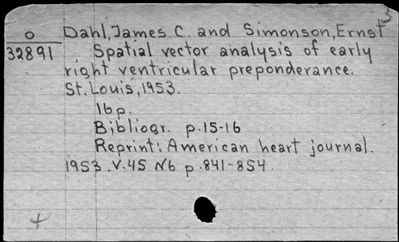 O Dahl, James C. and Simonson, Ernst
32891 Spatial vector analysis of early
right ventricular preponderance.
St. Louis, 1953.
16p.
Bibliogr. p.15-16
Reprint: American heart journal.
1953. V.45 N6 p.841-854